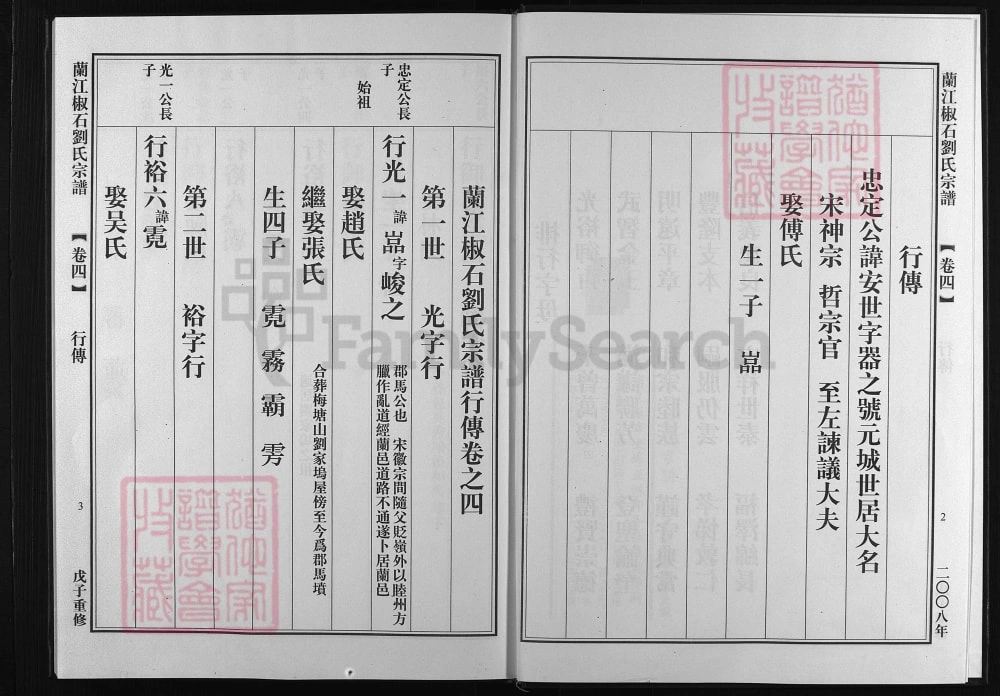 蘭江椒石劉氏宗譜
【卷四】
2
二〇〇八年
行傳
忠定公諱安世字器之號元城世居大名
宋神宗 哲宗官 至左諫議大夫
娶傅氏
生一子 嵓
蘭江椒石劉氏宗譜行傳卷之四
第一世 光字行
忠定公長子
始祖
行光一諱嵓字峻之
郡馬公也 宋徽宗間隨父貶嶺外以睦州方
臘作亂道經蘭邑道路不通遂卜居蘭邑
娶趙氏
繼娶張氏
合葬梅塘山劉家塢屋傍至今爲郡馬墳
生四子 霓 霧 霸 雱
第二世 裕字行
光一公長子
行裕六諱霓
娶吴氏
蘭江椒石劉氏宗譜
【卷四】
行傳
3
戊子重修
FamilySearch